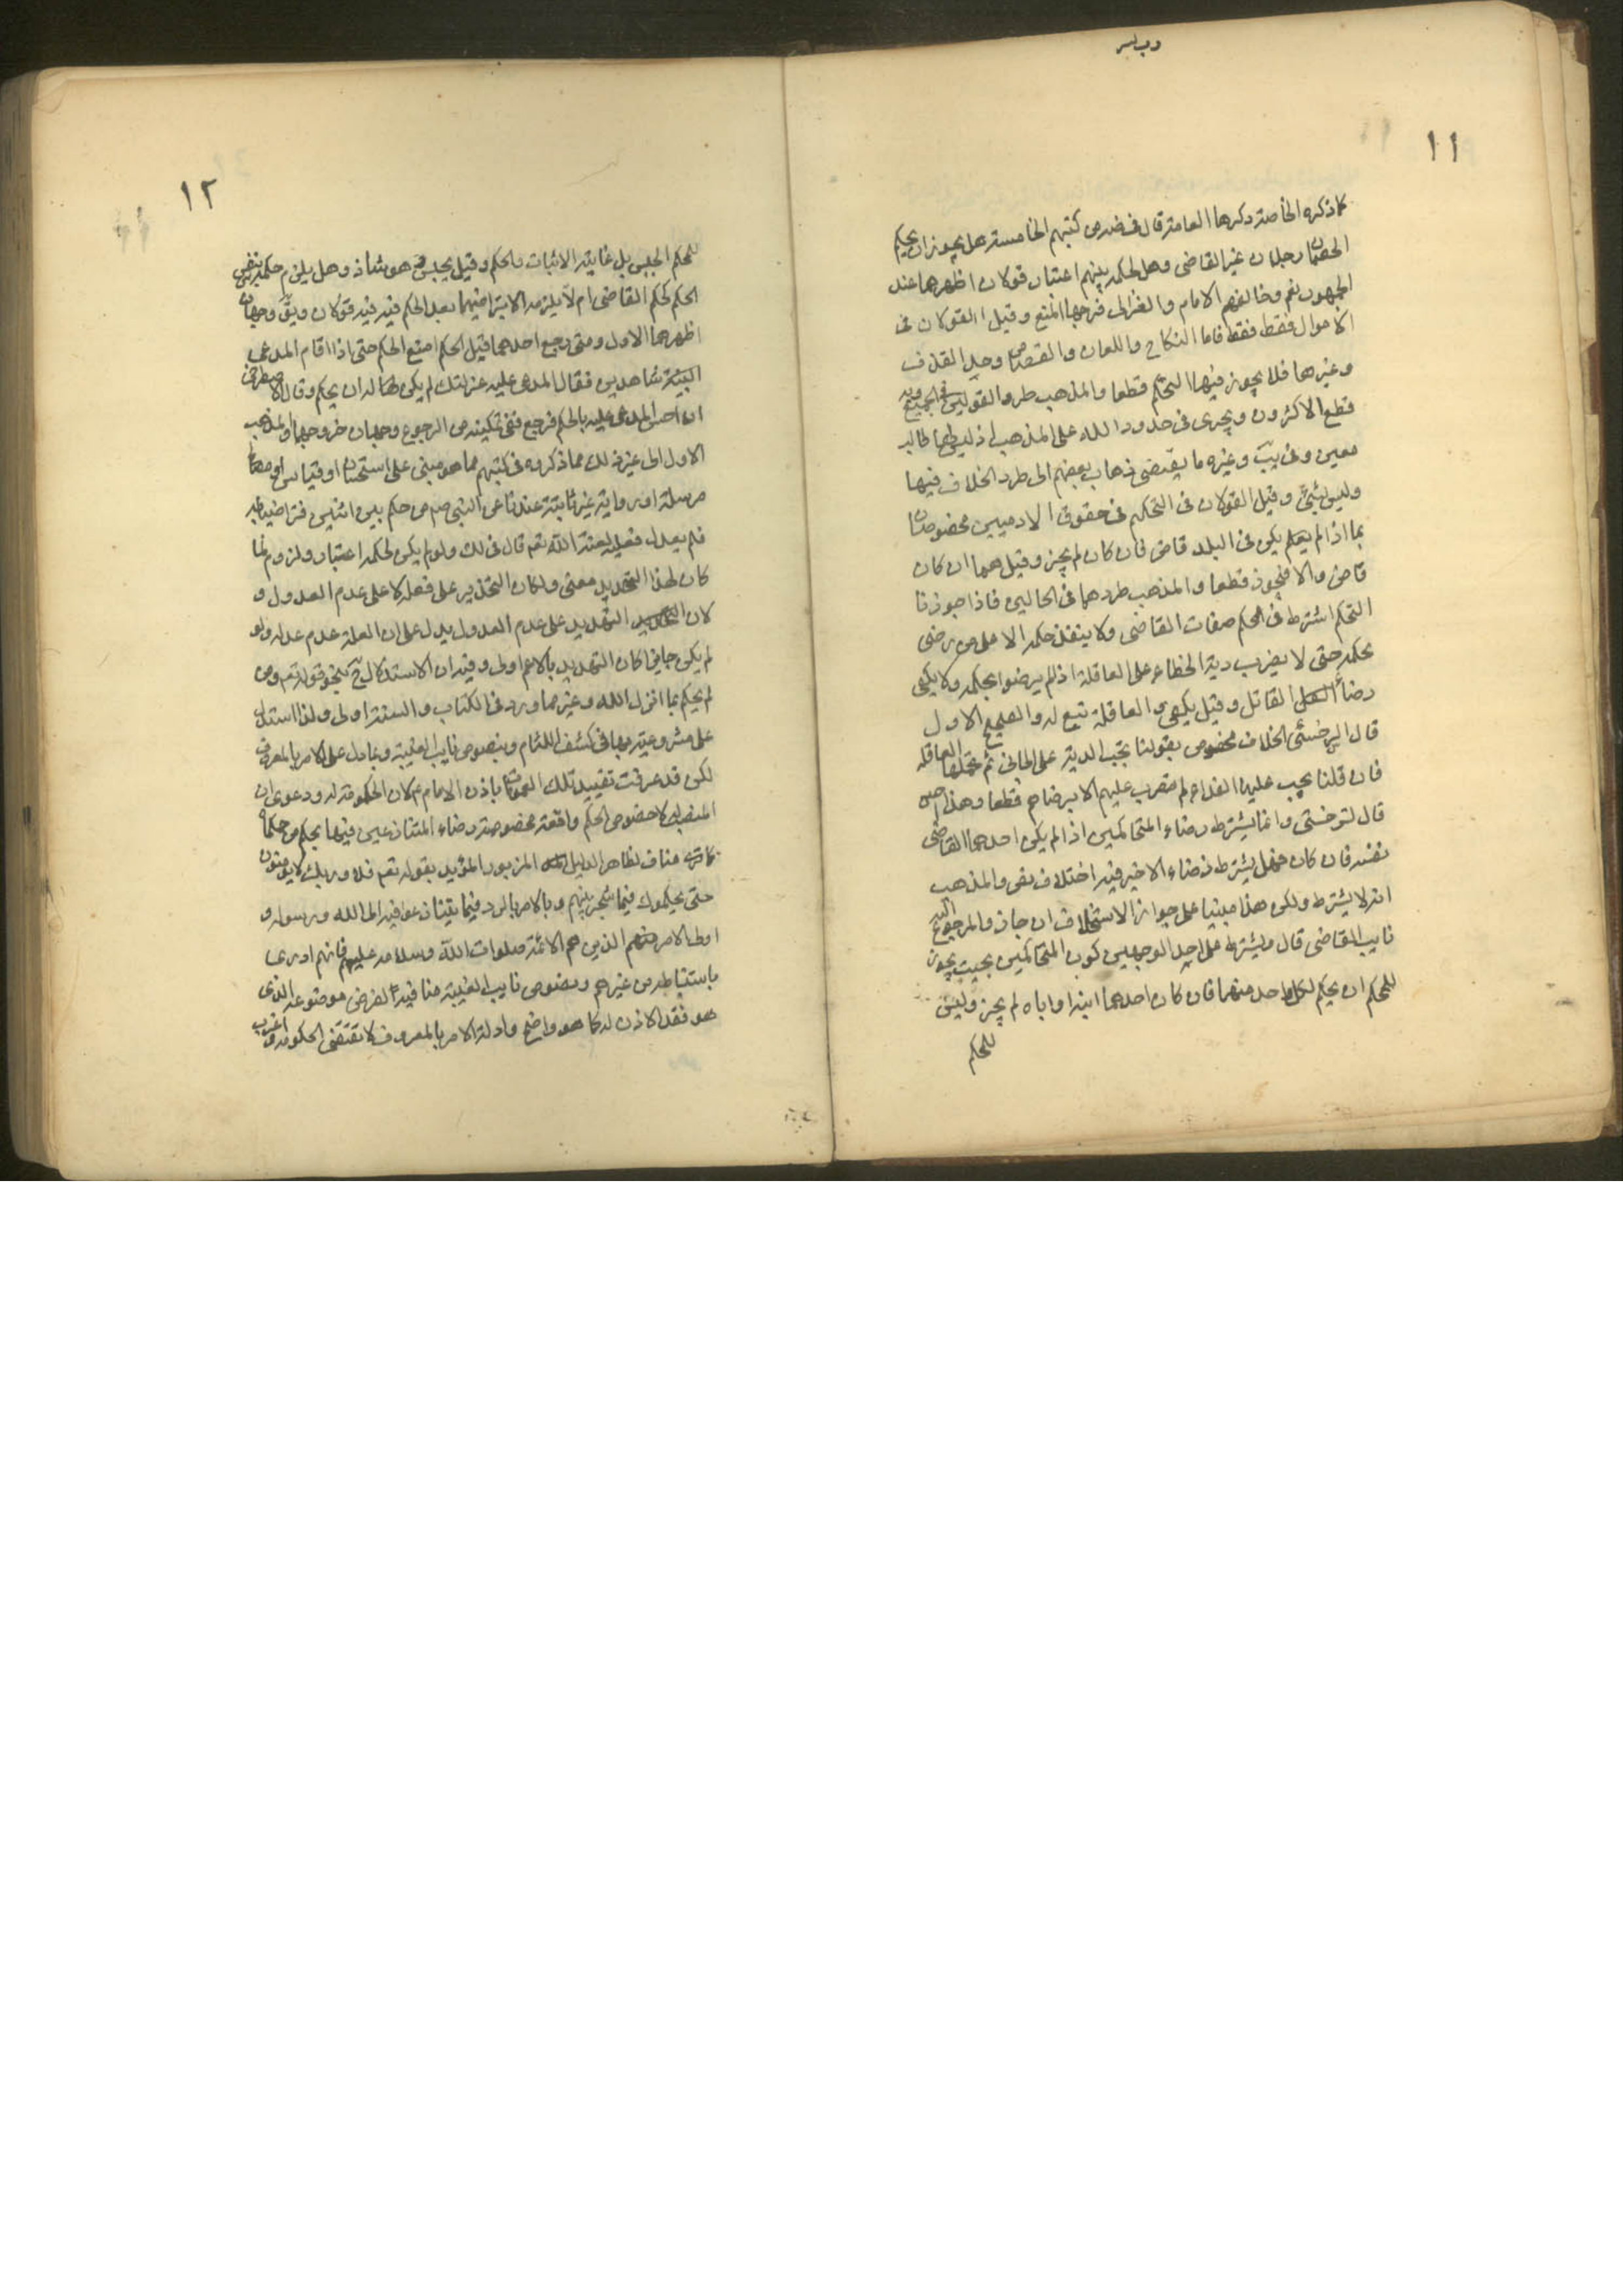 ١١
كما ذكره الخاصة ذكرها العامة قال في كتبهم الخامسة هل يجوز ان يحكم
الخصمان رجلا غير القاضي وهل لحكمه بينهم اعتبار قولان اظهرهما عند
الجمهور نعم وخالفهم الامام والغزالي فرجحا المنع وقيل القولان في
الاموال فقط فاما النكاح واللعان والقصاص وحد القذف
وغيرها فلا يجوز فيها التحكيم قطعا والمذهب طرد القولين في الجميع وبه
قطع الاكثرون ويجرى في حدود الله على المذهب اذ ليس لها طالب
معين وفي يب وغيره ما يقتضى ذهاب بعضهم الى طرد الخلاف فيها
وليس بشئ وقيل القولان في التحكيم في حقوق الادميين مخصوصان
بما اذا لم يكن في البلد قاض فان كان لم يجز وقيل هما ان كان
قاض والا فيجوز قطعا والمذهب طردهما في الحالين فاذا جوزنا
التحكم اشترط في المحكم صفات القاضى ولا ينفذ حكمه الا على من رضى
بحكمه حتى لا يضرب دية الخطاء على العاقلة اذا لم يرضوا بحكمه ولا يكفى
رضاء القاتل وقيل يكفى والعاقلة تبع له والصحيح الاول
قال السرخسي الخلاف مخصوص بقولنا تجب الدية على الجانى ثم تحملها العاقلة
فان قلنا يجب عليها ابتداء لم تضرب عليهم الا برضاهم قطعا وهذا حسن
قال السرخسى وانما يشترط رضاء المتحاكمين اذا لم يكن احدهما القاضى
نفسه فان كان فهل يشترط رضاء الاخر فيه اختلاف نص والمذهب
انه لا يشترط وليكن هذا مبنيا على جواز الاستخلاف ان جاز فالمرجوع اليه
نايب القاضى قال ويشترط على احد الوجهين كون المتحاكمين بحيث يجوز
للمحكم ان يحكم لكل واحد منهما فان كان احدهما ابنه او اباه لم يجز وليس
للمحكم
١٢
للمحكم الحبس بل غايته الاثبات والحكم وقيل يحبس وهو شاذ وهل يلزم حكمه بنفس
الحكم كحكم القاضى ام لا يلزم الا بتراضيهما بعد الحكم فيه قولان ويق وجهان
اظهرهما الاول ومتى رجع احدهما قبل الحكم امتنع الحكم حتى اذا اقام المدعى
البينة شاهدين فقال المدعى عليه عزلتك لم يكن له ان يحكم وقال الاصطخرى
ان احس المدعى عليه بالحكم فرجع ففى تمكينه من الرجوع وجهان والمذهب
الاول الى غير ذلك مما ذكروه في كتبهم مما هو مبنى على استحسان او قياس او مصالح
مرسلة او رواية غير ثابتة عندنا عن النبى صم من حكم بين اثنين فتراضيا به
فلم يعدل فعليه لعنة الله تعم قال في لك ولو لم يكن لحكمه اعتبار ولزوم لما
كان لهذا التهديد معنى ولكان التحذير على فعله لا على عدم العدول و
لان التهديد على عدم العدول يدل على ان العلة عدم عدله ولو
لم يكن جايزا كان التهديد بالاعم اولى وفيه ان الاستدلال بنحو قوله تعم ومن
لم يحكم بما انزل الله وغير مما ورد في الكتاب والسنة اولى ولذا استدل
على مشروعيته بها في كشف اللثام وبنصوص نايب الغيبة وبما دل على الامر بالمعروف
لكن قد عرفت تقييد تلك العمومات باذن الامام ع لان الحكومة له ودعوى ان
المنصب لا خصوص الحكم واقعة مخصوصة رضاء المتنازعين فيها بحكم من حكماه
كما ترى مناف لظاهر الدليل المزبور المؤيد بقوله تعم فلا وربك لا يؤمنون
حتى يحكموك فيما شجر بينهم وبالامر بالرد فيما يتنازعوا فيه الى الله ورسوله و
اولى الامر منهم الذين هم الائمة صلوات الله وسلامه عليهم فانهم ادرى
باستنباطه من غيرهم ونصوص نايب الغيبة منافية الفرض موضوعه الذى
هو فقد الاذن له كما هو واضح وادلة الامر بالمعروف لا تقتضى الحكومة واغرب